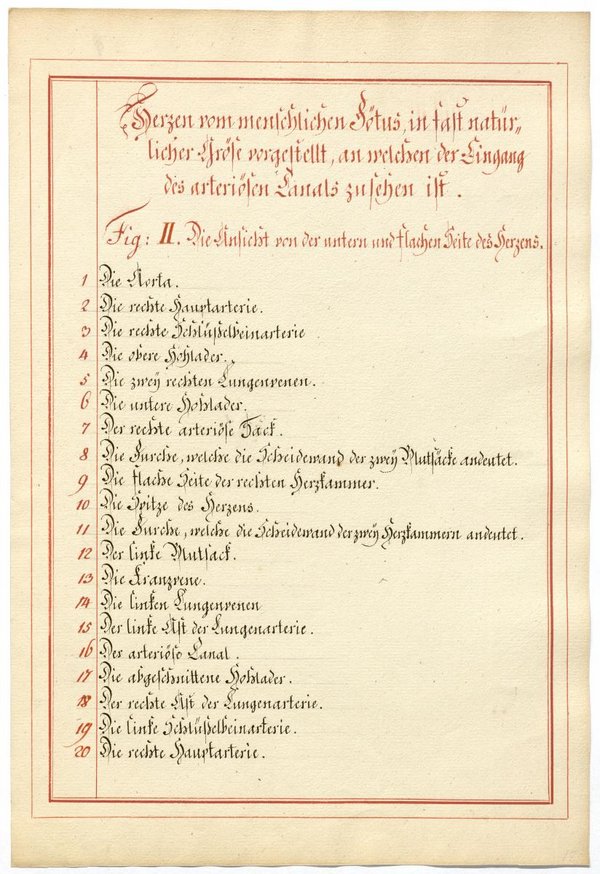 Herzen vom menschlichen Fötus, in fast natür„
licher Gröse vorgestellt, an welchen der Eingang
des arteriösen Canals zusehen ist.
Fig: II. Die Ansicht von der untern und flachen Seite des Herzens.
1 Die Aorta.
2 Die rechte Hauptarterie.
3 Die rechte Schlüßelbeinarterie
4 Die obere Hohlader.
5 Die zwey rechten Lungenvenen.
6 Die untere Hohlader.
7 Der rechte arteriöse Sack.
8 Die Furche, welche die Scheidewand der zwey Blutsäcke andeutet.
9 Die flache Seite der rechten Herzkammer.
10 Die Spitze des Herzens.
11 Die Furche, welche die Scheidewand der zwey Herzkammern andeutet.
12 Der linke Blutsack.
13 Die Kranzvene.
14 Die linken Lungenvenen
15 Der linke Ast der Lungenarterie.
16 Der arteriöse Canal.
17 Die abgeschnittene Hohlader.
18 Der rechte Ast der Lungenarterie.
19 Die linke Schlüßelbeinarterie.
20 Die rechte Hauptarterie.